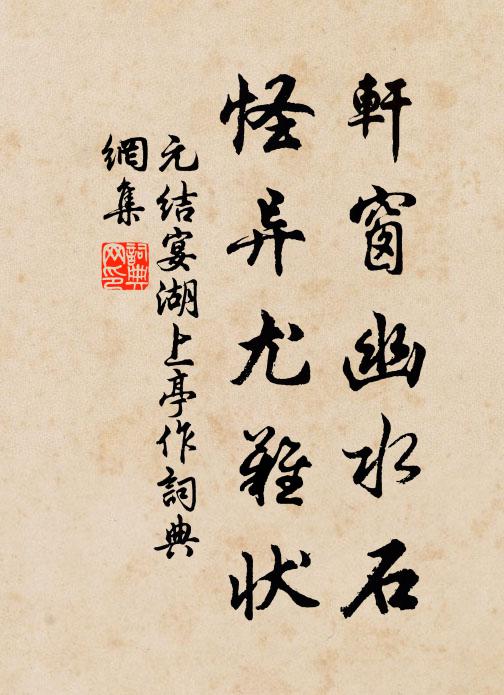 軒窗幽水石
怪异尤難状
元结宴湖上亭作詞典
網集
詞典
网印